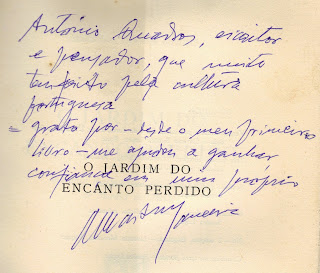 António Quadros, escritor
e pensador, que muito
tem feito pela cultura
portuguesa
grato por – desde o meu primeiro
livro – me ajudar a ganhar
O JARDIM DO
confiança em mim próprio
ENCANTO PERDIDO
Martins Janeira